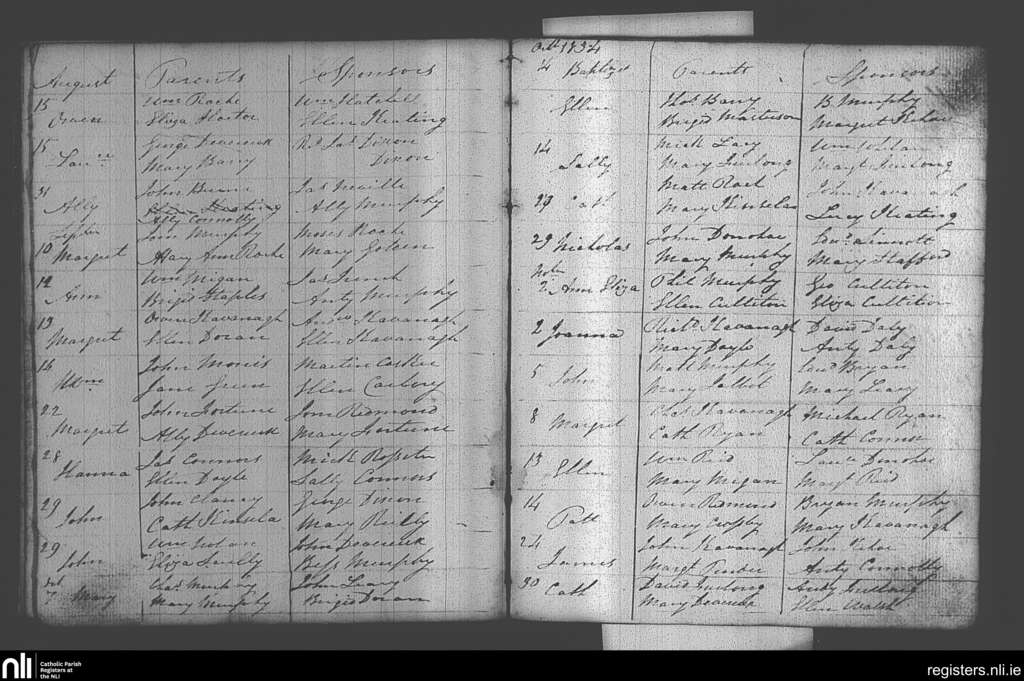 August Parents Sponsors
15 Wm Roche Wm Hatchell
Eliza Hector Ellen Keating
15 George Devereux Rd Jas Dixon
Mary Barry Dixon
31 John Jas Neville
Ally Keating Ally Murphy
Ally Connolly
Septr Jas Murphy Moses Roche
10 Margret Mary Ann Roche Mary
12 Wm Migan Jas French
Ann Brigid Staples Anty Murphy
13 Owen Kavanagh Andw Kavanagh
Margret Ellen Doran Ellen Kavanagh
16 John Morris Martin
Wm Jane Green Ellen
22 John Fortune Jom Redmond
Margret Ally Devereux Mary Fortune
28 Jas Connors Mick Rossiter
Hanna Ellen Doyle Sally Connors
29 John Clancy George Dixon
John Cath Kinsela Mary Reilly
29 Wm Nolan John Devereux
John Eliza Bess Murphy
Chas Murphy John Leary
7 Mary Mary Murphy Brigid Doran
Octr 1834
4 Baptized Parents Sponsors
Ellen Thos Barry B. Murphy
Brigid Matterson Margret Kehoe
14 Mick Lacy Wm
Sally Mary Furlong Margt Furlong
Matt Roch John
Cath Mary Kinselas Lucy Keating
29 Nicholas John Donohoe Edwd Sinnott
Mary Murphy Mary Stafford
Novr Phil Murphy Geo Culliton
2 Ann Eliza Ellen Culliton Eliza Culliton
2 Joanna Richd Kavanagh David Daly
Mary Doyle Anty Daly
5 Matt Murphy Laud Bryan
John Mary Talbot Mary Leary
8 Chas Kavanagh Michael Ryan
Margret Cath Ryan Cath Connor
13 Wm Reid Laue Donohoe
Ellen Mary Migan Margt Reid
14 Owen Redmond Bryan Murphy
Patt Mary Crossby Mary Kavanagh
24 John Kavanagh John Kehoe
James Margt Anty Connolly
30 David Furlong Andy Furlong
Cath Mary Devereux Ellen Walsh
nli
Catholic Parish
Registers at
the NLI
registers.nli.ie